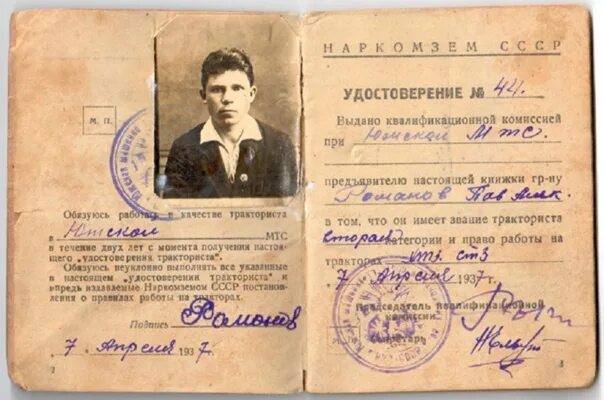 М. П.
Обязуюсь работать в качестве тракториста
в Юмской МТС
в течение двух лет с момента получения настоя-
щего "удостоверения тракториста".
Обязуюсь неуклонно выполнять все указанные
в настоящем "удостоверении тракториста" и
впредь издаваемые Наркомземом СССР постановле-
ния о правилах работы на тракторах.
Подпись Романов
7 Апреля 1937 г.
2
НАРКОМЗЕМ СССР
УДОСТОВЕРЕНИЕ № 44.
Выдано квалификационной комиссией
при Юмской МТС.
предъявителю настоящей книжки гр-ну
Романов
в том, что он имеет звание тракториста
второй категории и право работы на
тракторах СТЗ
7 Апреля 1937 г.
Председатель квалификационной
комиссии
Секретарь
3